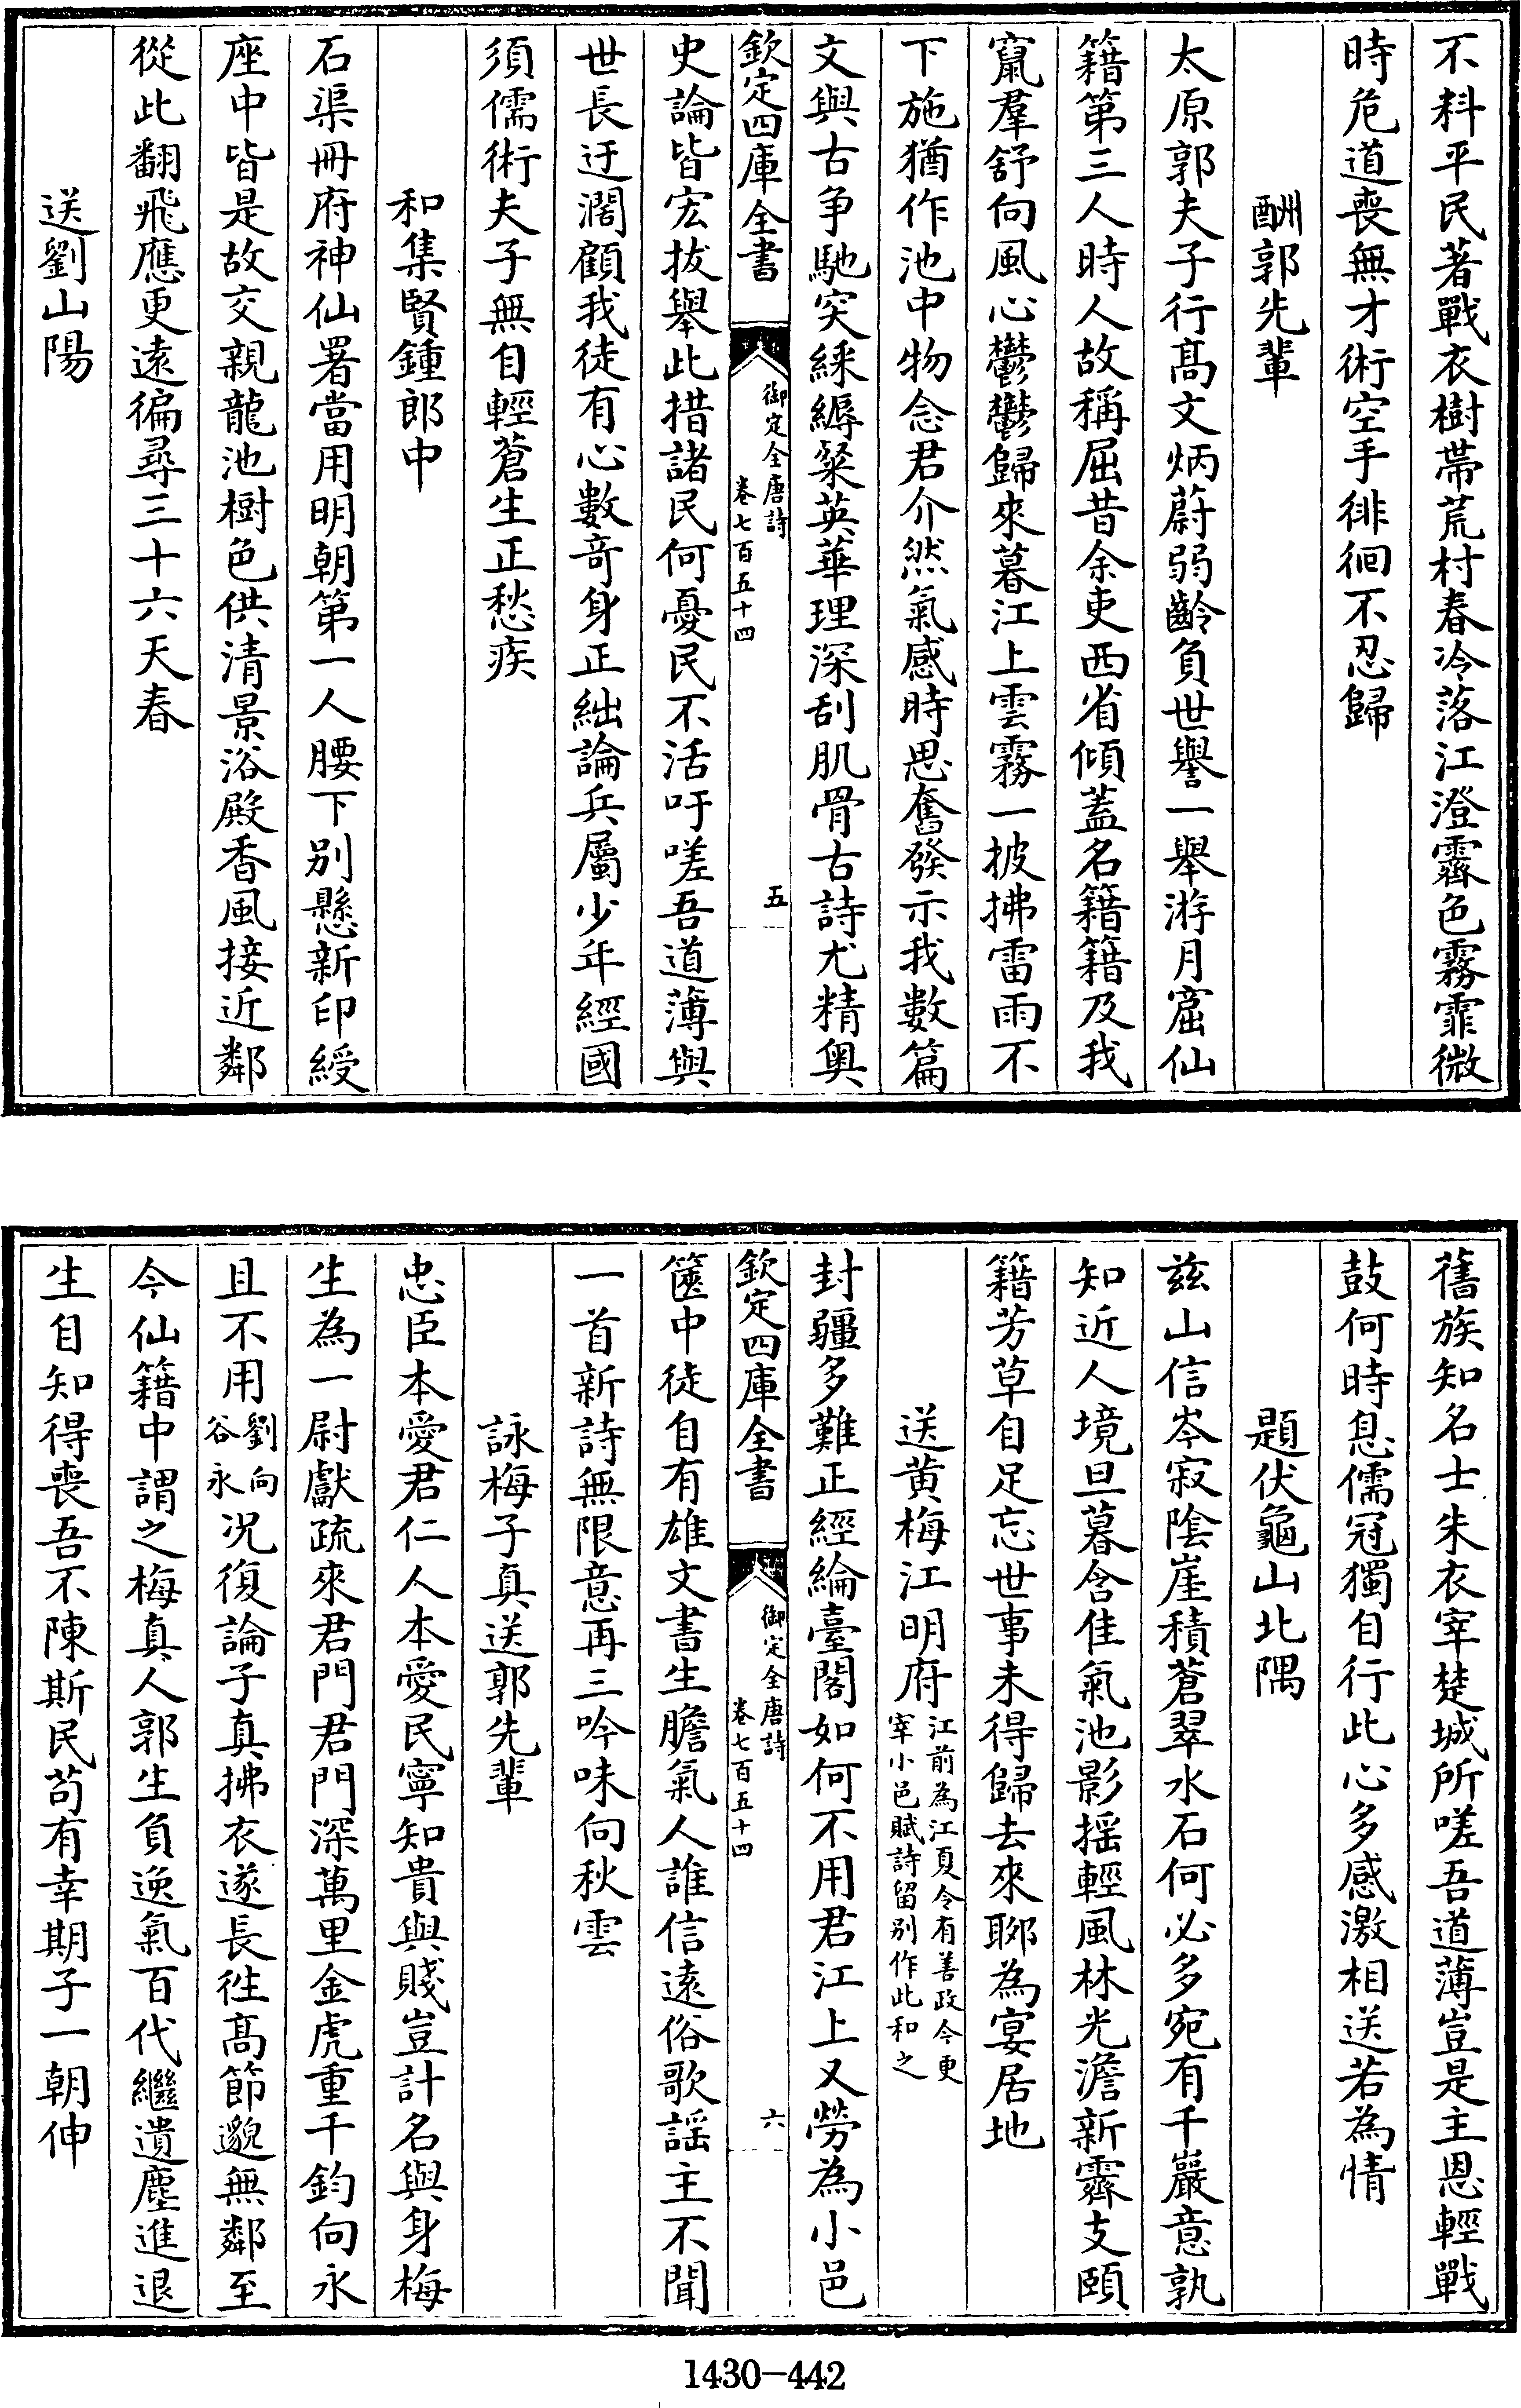 不料平民著戰衣樹帶荒村春冷落江澄霽色霧霏微
時危道喪無才術空手徘徊不忍歸
酬郭先輩
太原郭夫子行髙文炳蔚弱齡負世譽一舉游月窟仙
籍第三人時人故稱屈昔余吏西省傾蓋名籍籍及我
竄羣舒向風心鬱鬱歸來暮江上雲霧一披拂雷雨不
下施猶作池中物念君介然氣感時思奮發示我數篇
文與古爭馳突綵縟粲英華理深刮肌骨古詩尤精奥
欽定四庫全書
御定全唐詩
卷七百五十四
五
史論皆宏拔舉此措諸民何憂民不活吁嗟吾道薄與
世長迂濶顧我徒有心數竒身正絀論兵屬少年經國
須儒術夫子無自輕蒼生正愁疾
和集賢鍾郎中
石渠冊府神仙署當用明朝第一人腰下别懸新印綬
座中皆是故交親龍池樹色供清景浴殿香風接近鄰
從此翻飛應更遠徧尋三十六天春
送劉山陽
舊族知名士朱衣宰楚城所嗟吾道薄豈是主恩輕戰
鼓何時息儒冠獨自行此心多感激相送若為情
題伏龜山北隅
兹山信岑寂陰崖積蒼翠水石何必多宛有千巖意孰
知近人境旦暮含佳氣池影摇輕風林光澹新霽支頤
籍芳草自足忘世事未得歸去來聊為宴居地
送黄梅江明府江前為江夏令有善政今更宰小邑賦詩留别作此和之
封疆多難正經綸臺閣如何不用君江上又勞為小邑
欽定四庫全書
御定全唐詩
卷七百五十四
六
篋中徒自有雄文書生膽氣人誰信遠俗歌謡主不聞
一首新詩無限意再三吟味向秋雲
詠梅子真送郭先輩
忠臣本愛君仁人本愛民寧知貴與賤豈計名與身梅
生為一尉獻疏來君門君門深萬里金虎重千鈞向永
且不用劉向谷永况復論子真拂衣遂長徃髙節邈無鄰至
今仙籍中謂之梅真人郭生負逸氣百代繼遺塵進退
生自知得喪吾不陳斯民苟有幸期子一朝伸
1430-442